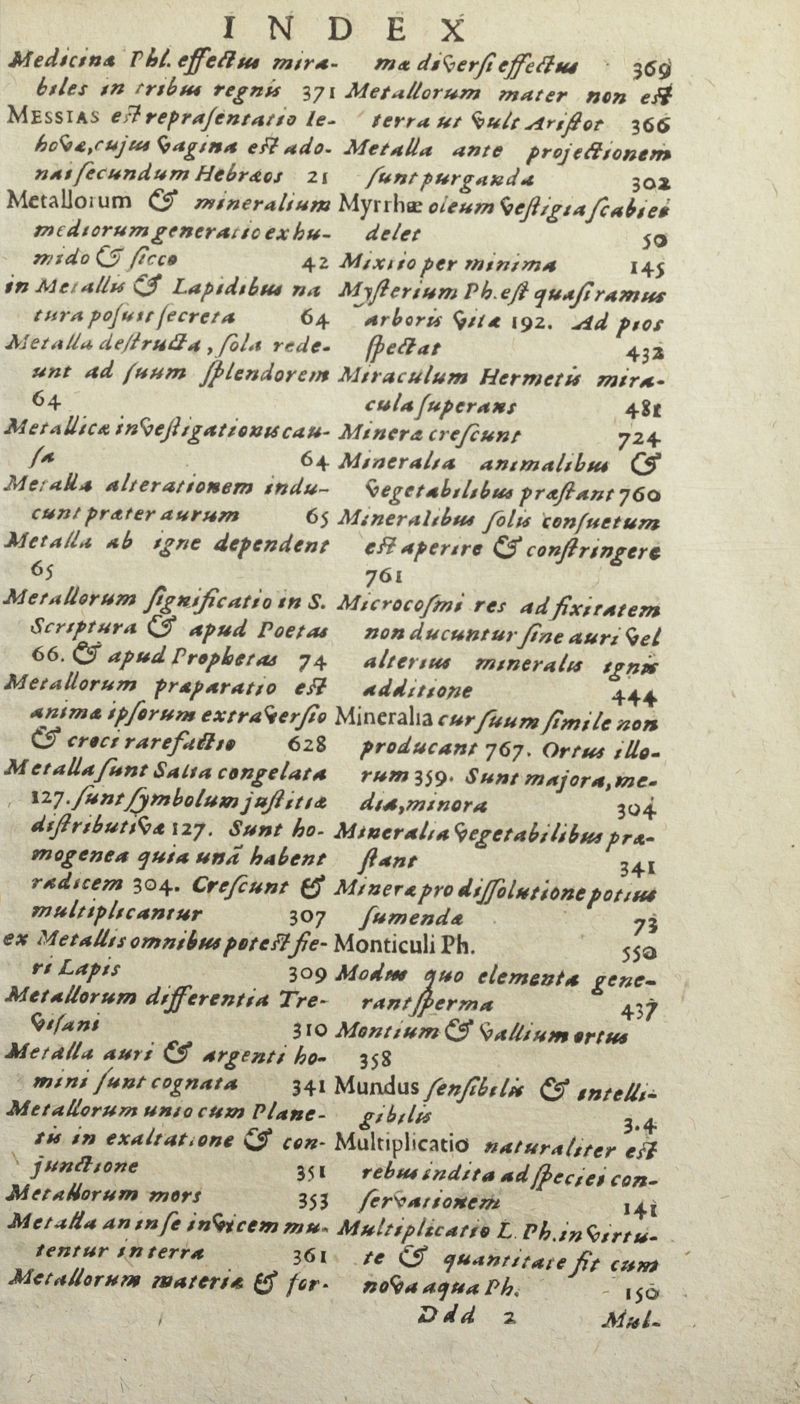 INDEX
Medicina Phl. effectus mira-
biles in tribus regnis 371
MESSIAS est repræsentatio Ie-
hovæ, cujus vagina est ado-
nai secundum Hebræos 21
Metallorum & mineralium
mediorum generatio ex hu-
mido & sicco 42
in Metallis & Lapidibus na
tura posuit secreta 64
Metalla destructa, sola rede-
unt ad suum splendorem
64
Metallicæ investigationis cau-
sa 64
Metalla alterationem indu-
cunt præter aurum 65
Metalla ab igne dependent
65
Metallorum significatio in S.
Scriptura & apud Poetas
66. & apud Prophetas 74
Metallorum præparatio est
animæ ipsorum extraversio
& croci rarefactio 628
Metalla sunt Salia congelata
127. sunt symbolum justitiæ
distributivæ 127. Sunt ho-
mogenea quia unã habent
radicem 304. Crescunt &
multiplicantur 307
ex Metallis omnibus potest fie-
ri Lapis 309
Metallorum differentia Tre-
visani 310
Metalla auri & argenti ho-
mini sunt cognata 341
Metallorum unio cum Plane-
tis in exaltatione & con-
junctione 351
Metallorum mors 353
Metalla an in se invicem mu-
tentur in terra 361
Metallorum materia & for-
mæ diversi effectus 369
Metallorum mater non est
terra ut vult Aristot 366
Metalla ante projectionem
sunt purganda 302
Myrrhæ oleum vestigia scabiei
delet 50
Mixtio per minima 145
Mysterium Ph. est quasi ramus
arboris vitæ 192. Ad pios
spectat 432
Miraculum Hermetis mira-
cula superans 481
Mineræ crescunt 724
Mineralia animalibus &
vegetabilibus præstant 760
Mineralibus solis consuetum
est aperire & constringere
761
Microcosmi res ad fixitatem
non ducuntur sine auri vel
alterius mineralis ignis
additione 444
Mineralia cur suum simile non
producant 767. Ortus illo-
rum 359. Sunt majora, me-
dia, minora 304
Mineralia vegetabilibus præ-
stant 341
Mineræ pro dissolutione potius
sumendæ 73
Monticuli Ph. 550
Modus quo elementa gene-
rant sperma 437
Montium & vallium ortus
358
Mundus sensibilis & intelli-
gibilis 3.4
Multiplicatio naturaliter est
rebus indita ad speciei con-
servationem 141
Multiplicatio L. Ph. in virtu-
te & quantitate fit cum
nova aqua Ph. 150
Ddd 2 Mul-